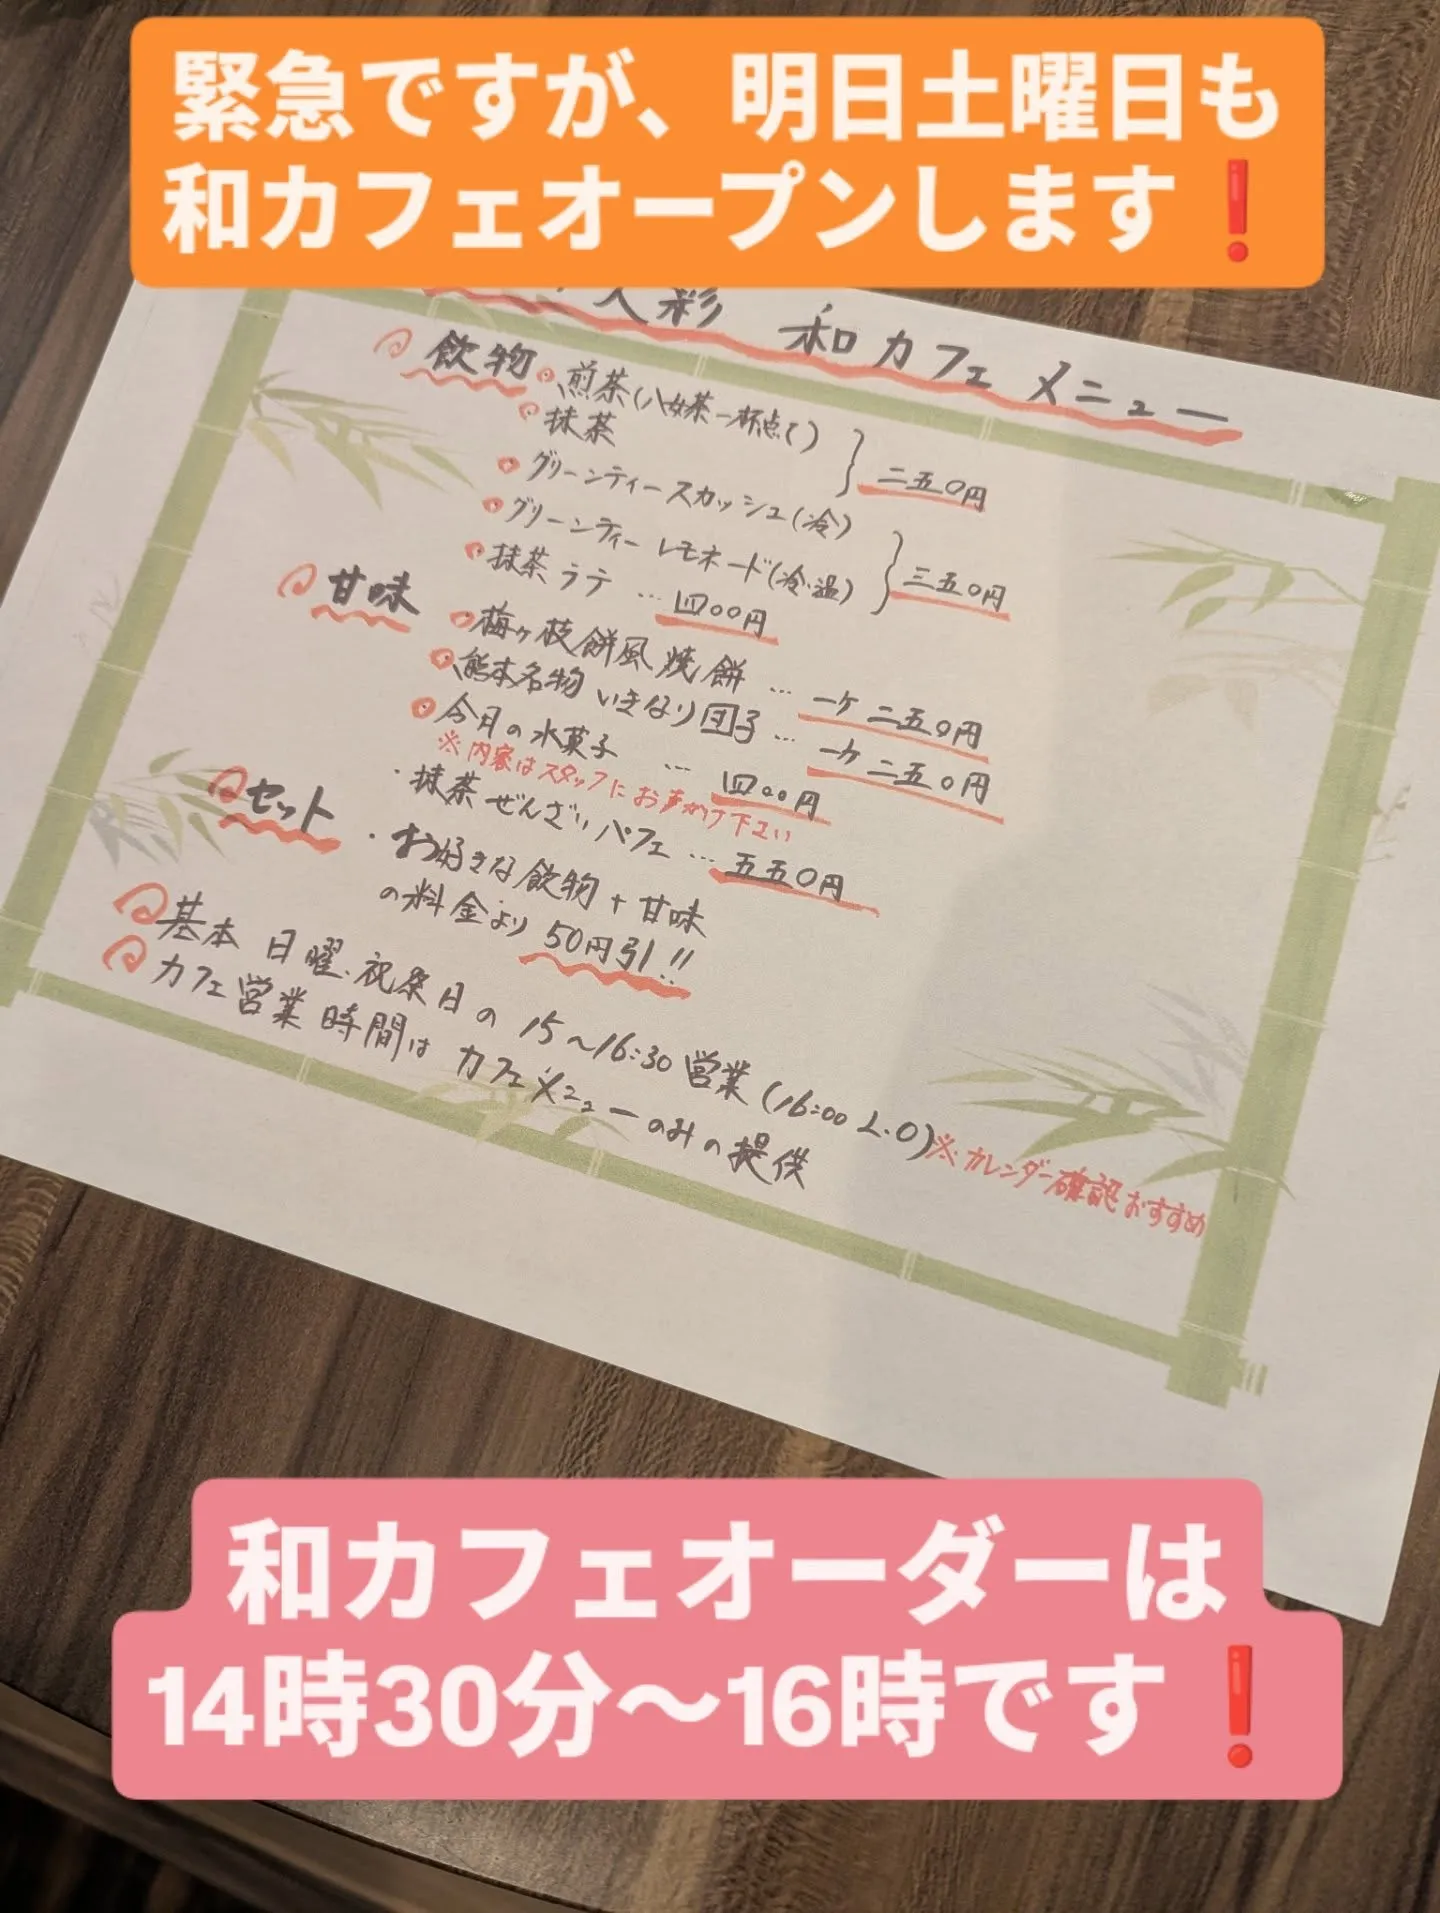 緊急ですが、明日土曜日も
和カフェオープンします❗
人彩 和カフェメニュー
飲物
煎茶(八女茶一杯点て)
抹茶
二五〇円
グリーンティースカッシュ(冷)
グリーンティーレモネード(冷・温)
三五〇円
抹茶ラテ … 四〇〇円
甘味
梅ヶ枝餅風焼餅 … 一ヶ 二五〇円
熊本名物 いきなり団子 … 一ヶ 二五〇円
今月の水菓子 … 四〇〇円
※内容はスタッフにお声がけ下さい
・抹茶ぜんざいパフェ … 五五〇円
セット
・お好きな飲物+甘味
の料金より 50円引!!
基本 日曜、祝祭日の 15〜16:30 営業(16:00 L.O)※カレンダー確認おすすめ
カフェ営業時間は カフェメニューのみの提供
和カフェオーダーは
14時30分〜16時です❗